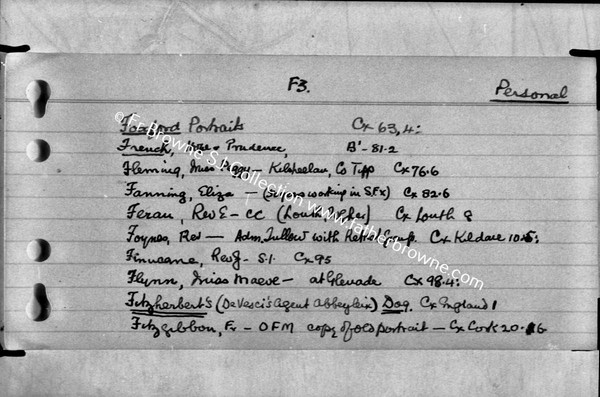 F3. Personal
Foxford Portraits Cx 63,4:
French, Prudence, B'-81.2
Fleming, Miss Peggy - Kilsheelan, Co Tipp Cx 76.6
Fanning, Eliza - (Supers working in S.F.X) Cx 82.6
Feran, Rev E - CC (Louth Cx Louth 8
Foynes, Rev - Adm. Tullow with Group. Cx Kildare 10.5;
Finucane, Rev J - S.J. Cx 95
Flynn, Miss Maeve - at Glenade Cx 98.4:
Fitzherbert's (DeVesci's Agent Abbeyleix) Dog. Cx England 1
Fitzgibbon, Fr - OFM copy of old portrait - Cx Cork 20.16
© Fr Browne S.J. Collection www.fatherbrowne.com